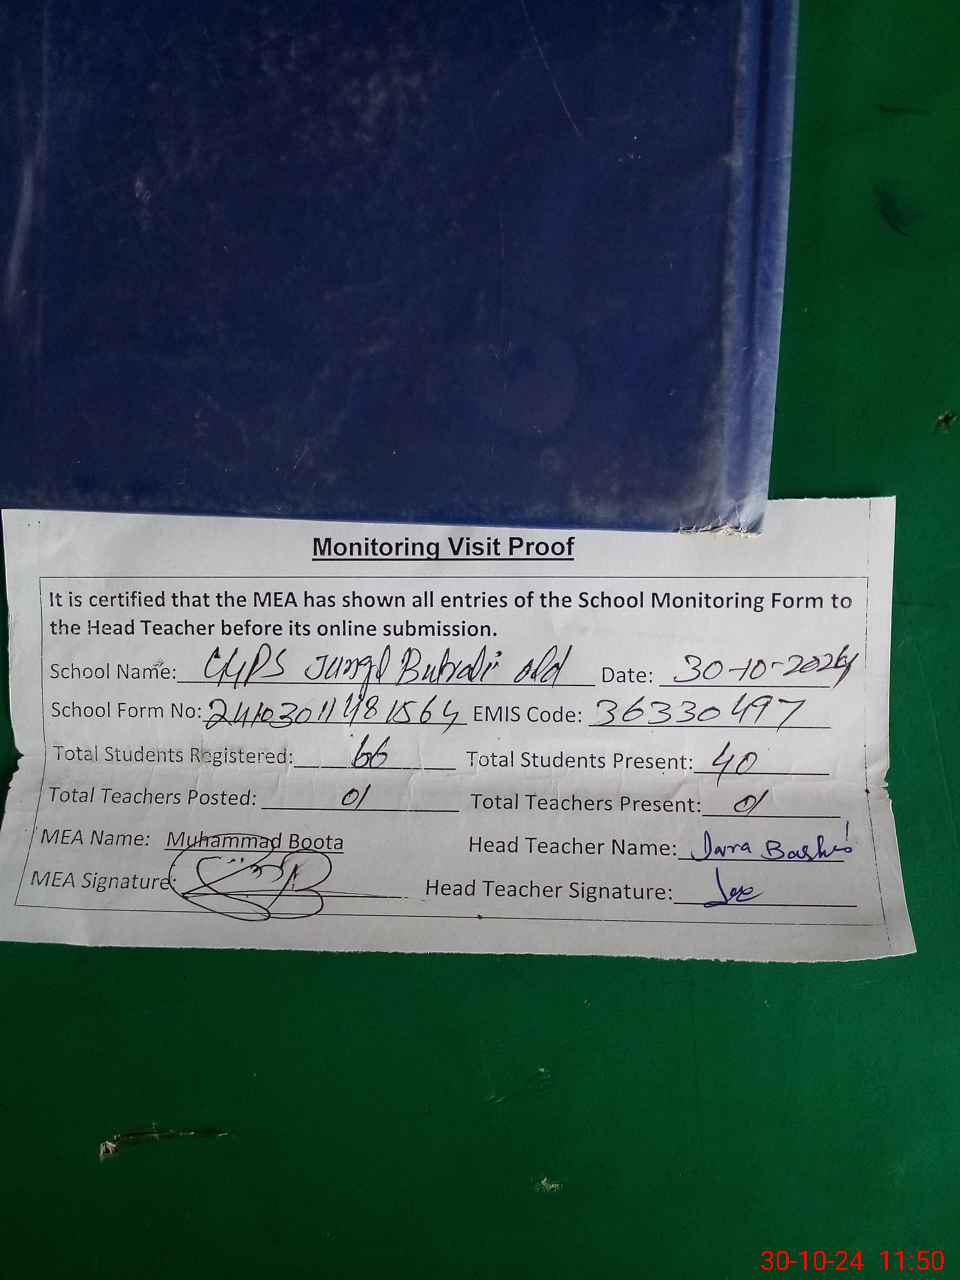 Monitoring Visit Proof
It is certified that the MEA has shown all entries of the School Monitoring Form to
the Head Teacher before its online submission.
School Name: GGPS Jungl Butrali old Date: 30-10-2024
School Form No: 24103011481564 EMIS Code: 36330497
Total Students Registered: 66 Total Students Present: 40
Total Teachers Posted: 01 Total Teachers Present: 01
MEA Name: Muhammad Boota Head Teacher Name:
MEA Signature: Head Teacher Signature:
30-10-24 11:50